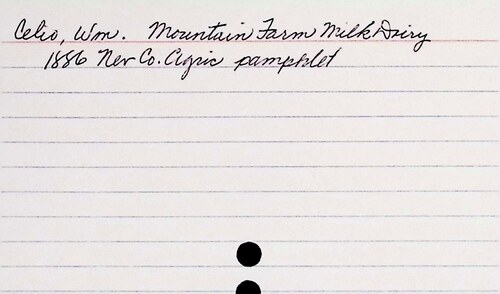 Celio, Wm. Mountain Farm Milk Dairy
1886 Nev Co. Agric pamphlet